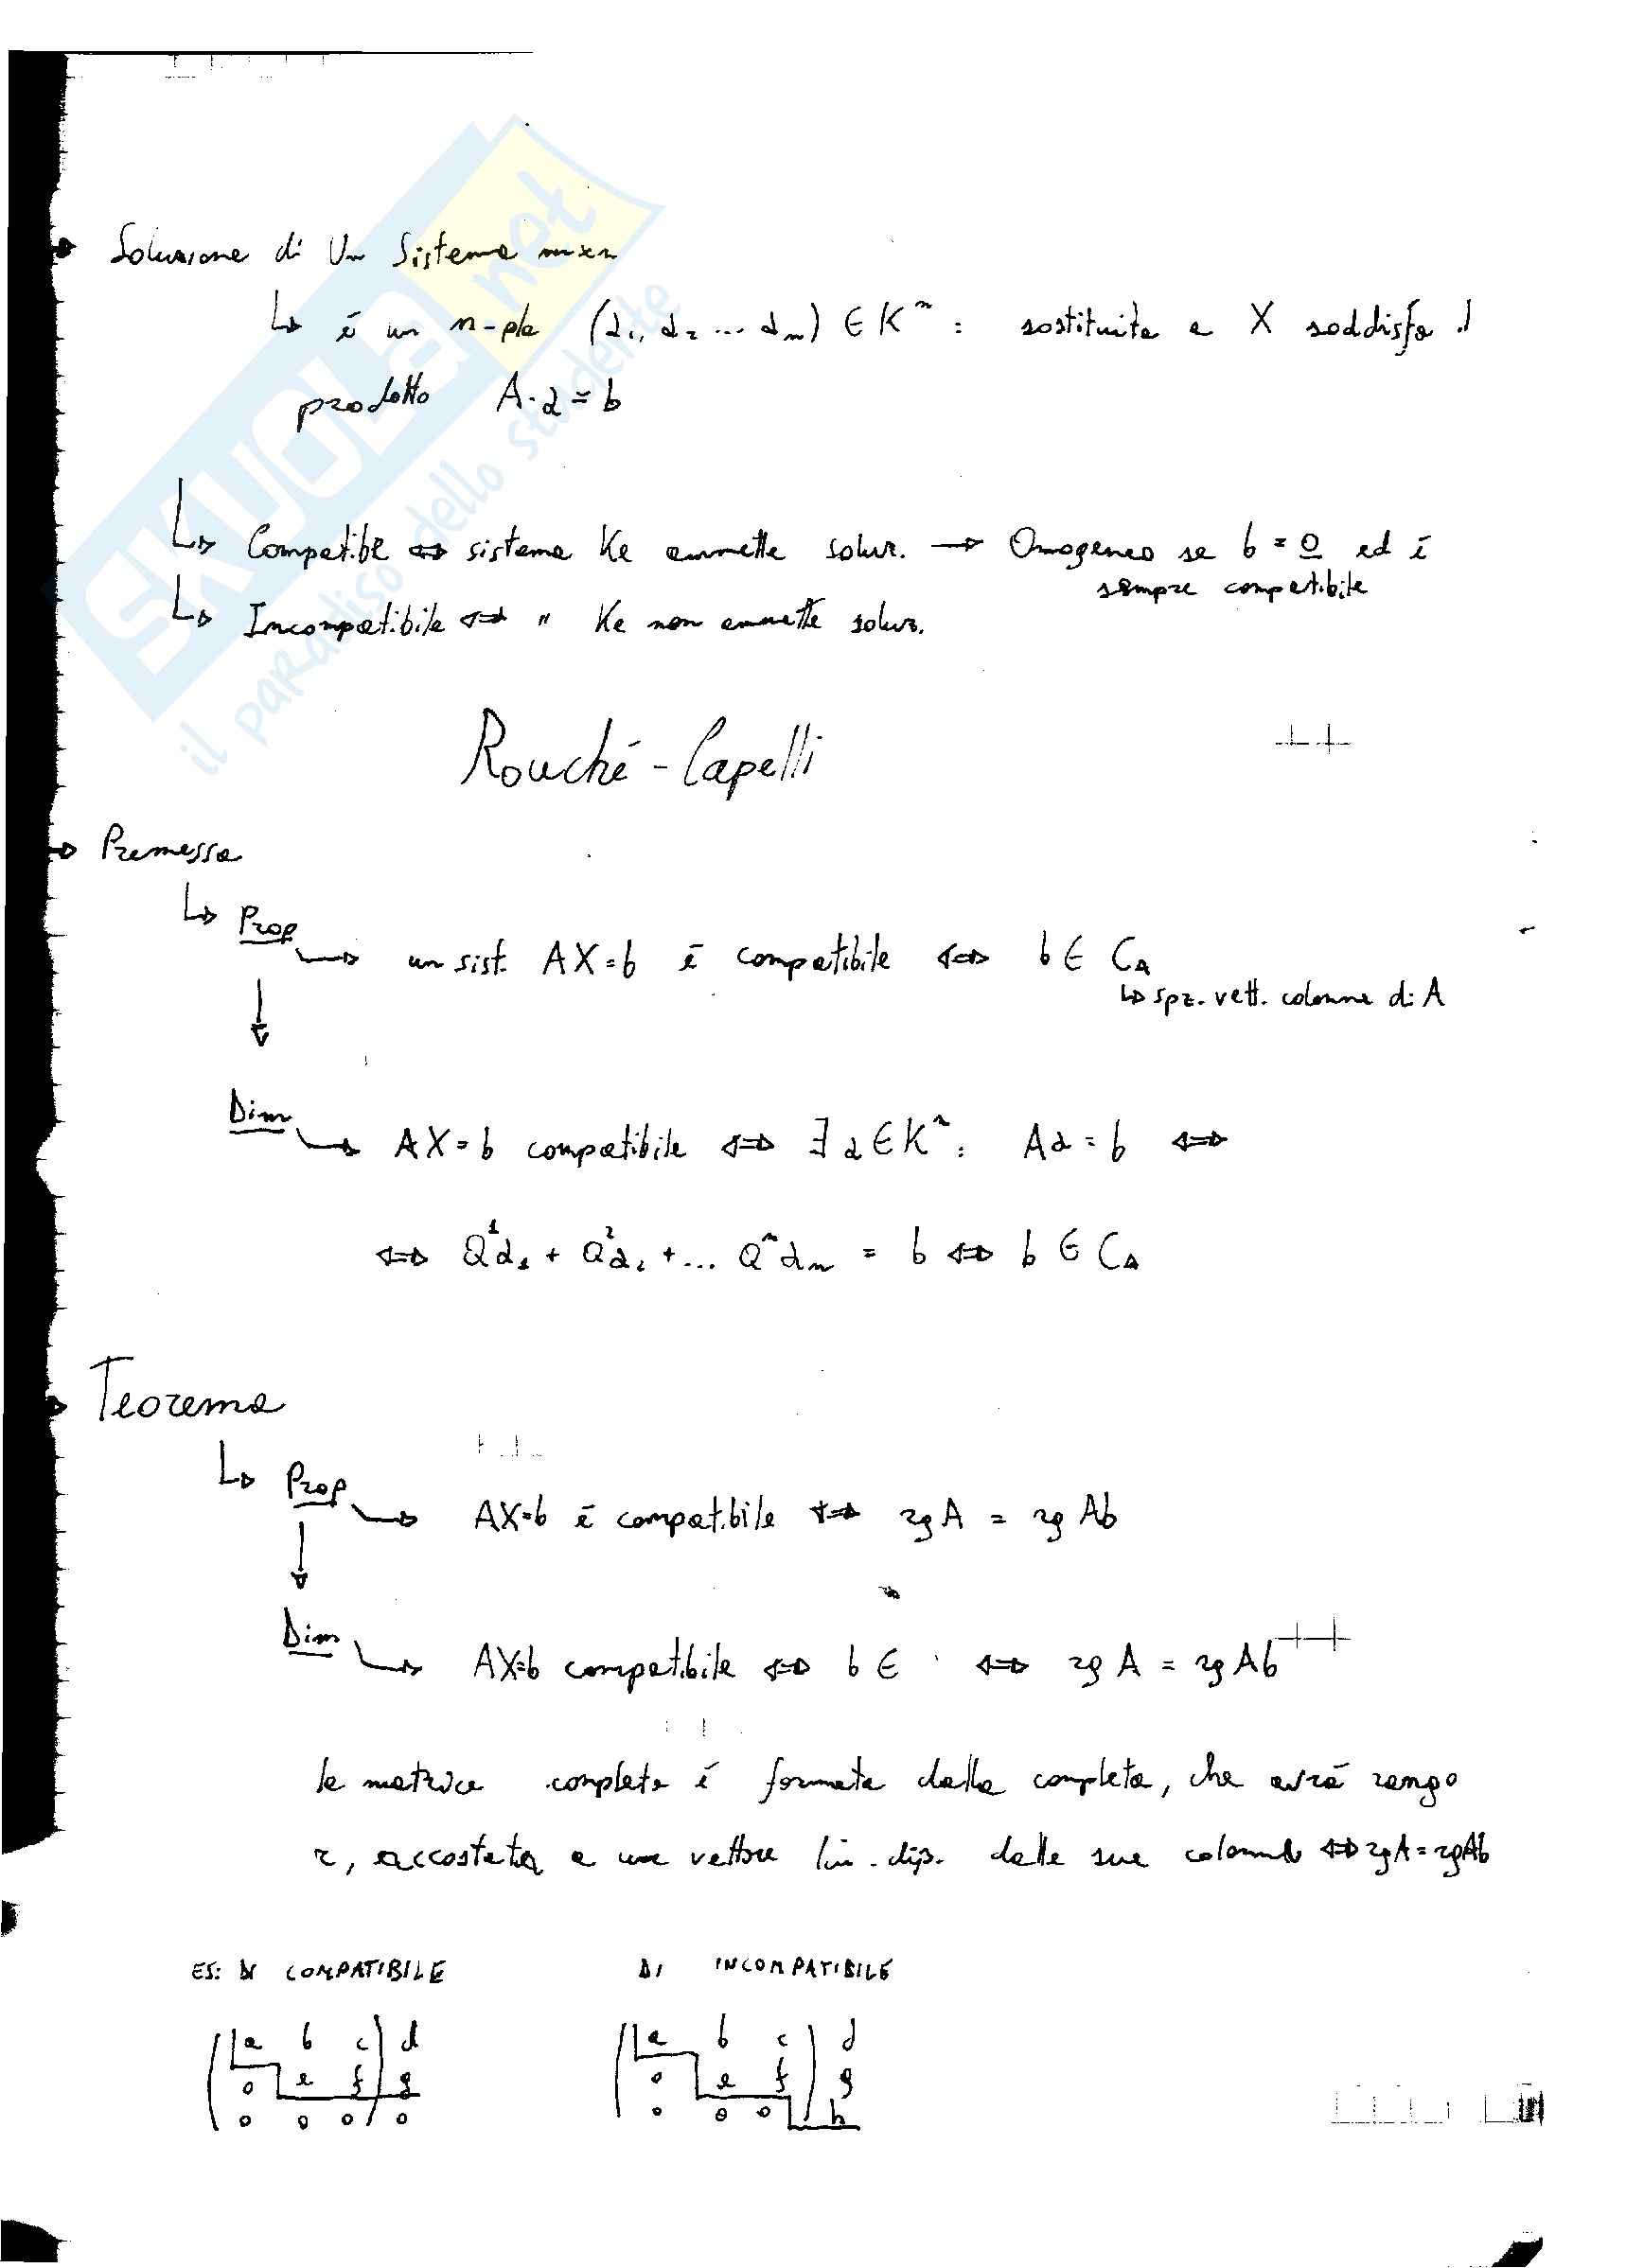 Soluzione di Un Sistema mxn
↳ é un n-pla (α₁, α₂ ... αₙ) ∈ Kⁿ : sostituita a X soddisfa il
prodotto A·α = b
↳ Compatibile ⇔ sistema Ke ammette soluz. → Omogeneo se b = 0 ed é
sempre compatibile
↳ Incompatibile ⇔ " Ke non ammette soluz.
Rouché-Capelli
→ Premessa
↳ Prop
→ un sist. AX=b é compatibile ⇔ b ∈ C_A
↳ spz. vett. colonne di A
↓
Dim → AX=b compatibile ⇔ ∃ α ∈ Kⁿ : Aα = b ⇔
⇔ Q¹α₁ + Q²α₂ + ... Qⁿαₙ = b ⇔ b ∈ C_A
Teorema
↳ Prop
→ AX=b é compatibile ⇔ rg A = rg Ab
↓
Dim → AX=b compatibile ⇔ b ∈ ⇔ rg A = rg Ab
la matrice completa é formata dalla completa, che avrá rango
r, accostata a un vettore lin. dip. dalle sue colonne ⇔ rgA = rgAb
ES: DI COMPATIBILE DI INCOMPATIBILE
a b c d a b c d
0 e f g 0 e f g
0 0 0 0 0 0 0 h
SKUOLA.net
il paradiso dello studente